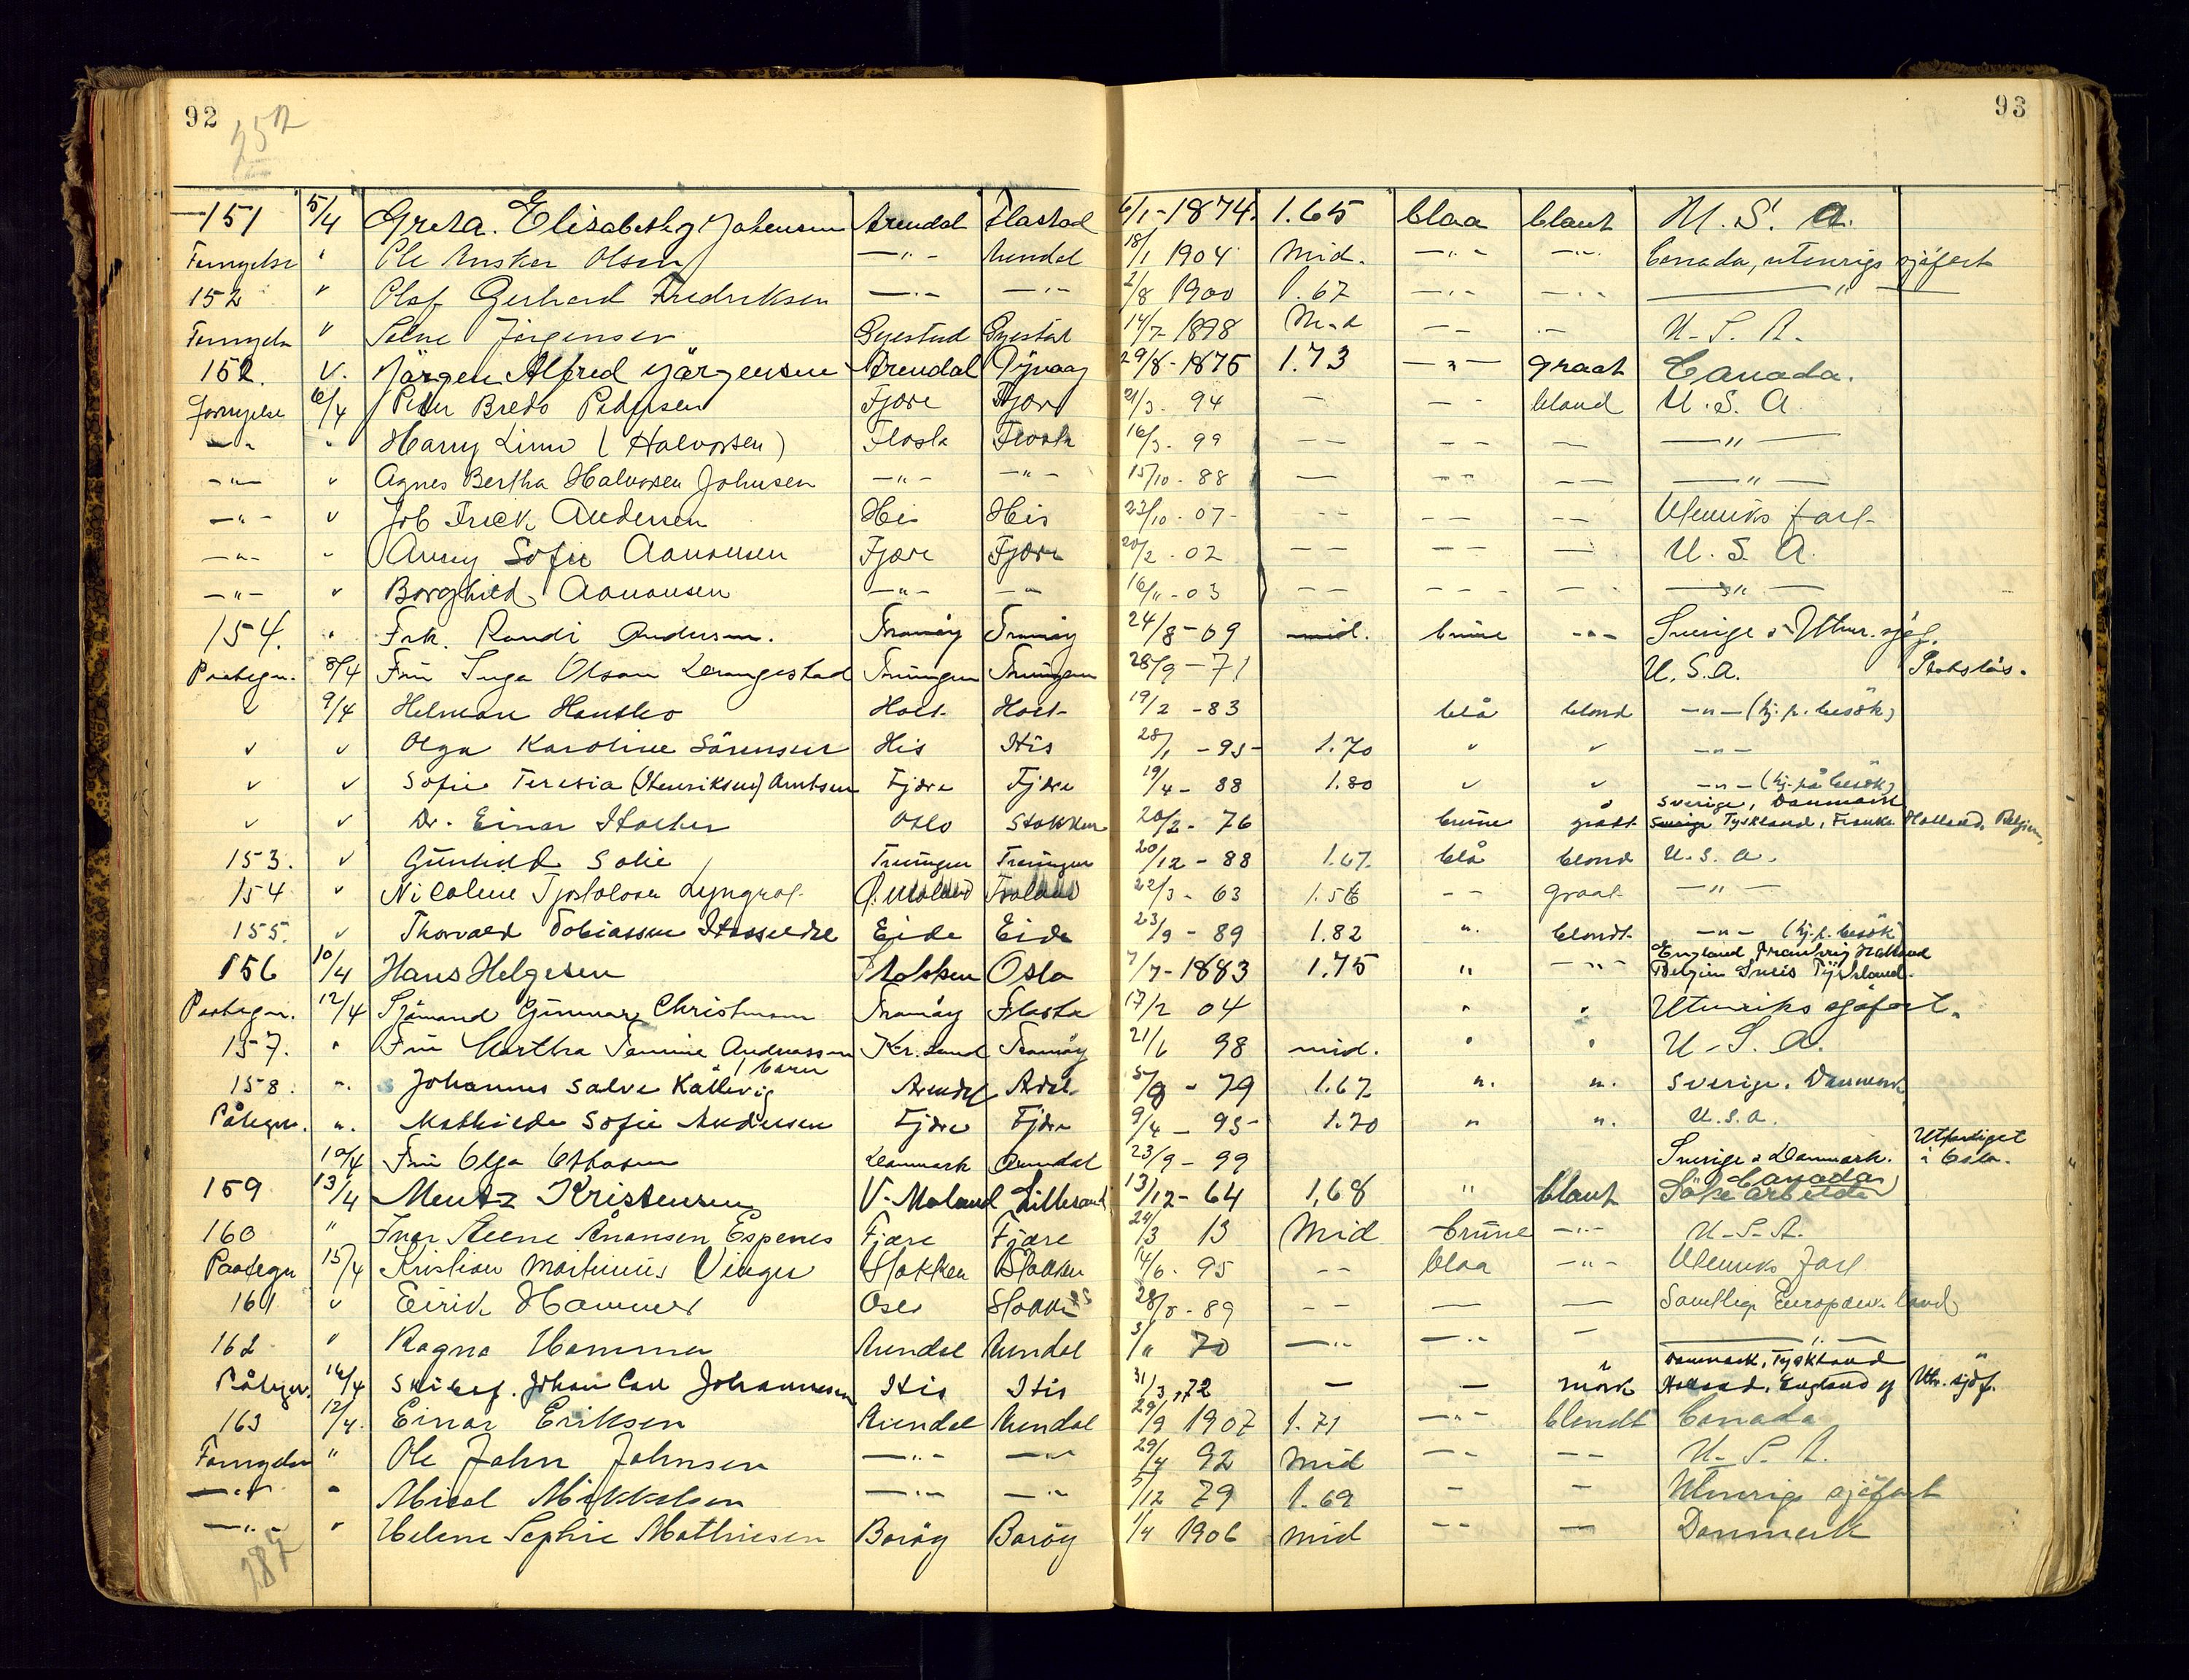 92
93
151 5/4 Greta. Elisabeth Johensen Arendal Flastad 6/1-1874. 1.65 blaa blant U. S. A.
Fornyelse " Ole Ansker Olsen —"— Arendal 18/1 1904 Mid. —"— —"— Canada, utenrigs sjöfart
152 " Olaf Gerhard Fredriksen —"— —"— 2/8 1900 1.67 —"— —"— —"—
Fornyelse " Selne Jörgensen Gjestad Gjestad 14/7 1898 Mid — — — U. S. A.
152. V. Jörgen Alfred Jörgensen Arendal Dÿvaag 29/8-1875 1.73 —"— graat Canada.
Fornyelse 6/4 Peder Bredo Pedersen Fjære Fjære 21/3. 94 — — — blond U. S. A.
—"— " Harry Linn (Halvorsen) Flosta Flosta 16/3. 99 — — — — — —"—
—"— " Agnes Bertha Halvorsen Johnsen —"— —"— 15/10 - 88 — — — — —"—
—"— " Job Frick Andersen His His 23/10 - 07 — — — — — Utenriks fart
—"— " Anny Sofie Aanonsen Fjære Fjære 20/2 - 02 — — — — — U. S. A.
—"— " Borghild Aanonsen —"— —"— 16/11 - 03 — — — — — —"—
154. " Frk. Randi Andersen. Tromöy Tromöy 24/8 - 09 mid. brune —"— Sverige & Utenr. sjöf.
Paategn. 8/4 Frü Inga Olsen Lerangestad Treüngen Treüngen 28/9 - 71 U. S. A. Statslös.
" 9/4 Helman Holt Holt 19/2 - 83 blå blond —"— (hj. p. besök)
" " Olga Karoline Sörensen His His 28/1 - 95 1.70 " " —"—
" " Sofie Teresia (Henriksen) Arntsen Fjære Fjære 19/4 - 88 1.80 " " —"— (hj. på besök)
" " Dr. Einar Oslo Stokken 20/2 - 76 brune grått Sverige, Danmark Tyskland, Frankr. Holland, Belgien,
153. " Günhild Solie Treüngen Treüngen 20/12 - 88 1.67. blå blond U. S. A.
154 " Nicoline Tjostolvsen Lyngrot Froland 22/3 - 63 1.56 — — graat —"—
155. " Thorvald Tobiassen Eide Eide 23/9 - 89 1.82 " blondt —"— (hj. p. besök)
156 10/4 Hans Helgesen Stokken Oslo 7/7-1883 1.75 " —"— England Frankrig Holland Belgien Sveis Tÿskland.
Paategn. 12/4 Sjömand Günnar Christensen Tromöy Flosta 17/2 04 " " Utenriks sjöfart.
157. " Frü Martha Tomine Andreassen Kr.sand Tromöy 21/6 98 mid. " " U. S. A.
& 1 barn
158. " Johannes Salve Kallevig Arendal Ardal 5/8 - 79 1.67 " " Sverige. Danmark
Påtegn. " Mathilde Sofie Andersen Fjære Fjære 9/4 - 95 1.70 " " U. S. A.
12/4 Frü Olga Danmark Arendal 23/9 - 99 Sverige & Danmark. Utferdiget i Oslo.
159 13/4 Mentz Kristensen V-Moland Lillesand 13/12 - 64 1,68 " blant Canada Söke arbeide
160 " Inar Ånonsen Espenes Fjære Fjære 24/3 13 Mid brüne —"— U. S. A.
Paategn 15/4 Kristian Martinius Vinger Stokken Stokken 14/6. 95 — — blaa —"— Utenriks fart
161 " Eirik Hammer Oslo Stokken 28/8 - 89 — — — — Samtlige Europæiske land
162 " Ragna Hammer Arendal Arendal 3/11 70 —"— —"— — —"—
Påtegn. 16/4 Skibsf. Johan Carl Johannesen His His 31/3,72 — — mörk Danmark, Tyskland Holland, England og Utr. sjöf.
163 12/4. Einar Eriksen Arendal Arendal 29/9 1907 1.71 —"— blondt Canada
Fornyelse " Ole John Johnsen —"— —"— 29/4 92 Mid — — — — U. S. A.
—"— " Misal Mikkelsen —"— —"— 5/12 79 1.69 — — Utenrigs sjöfart
—"— " Helene Sophie Mathiesen Boröy Boröy 1/4 1906 mid — — — Danmark